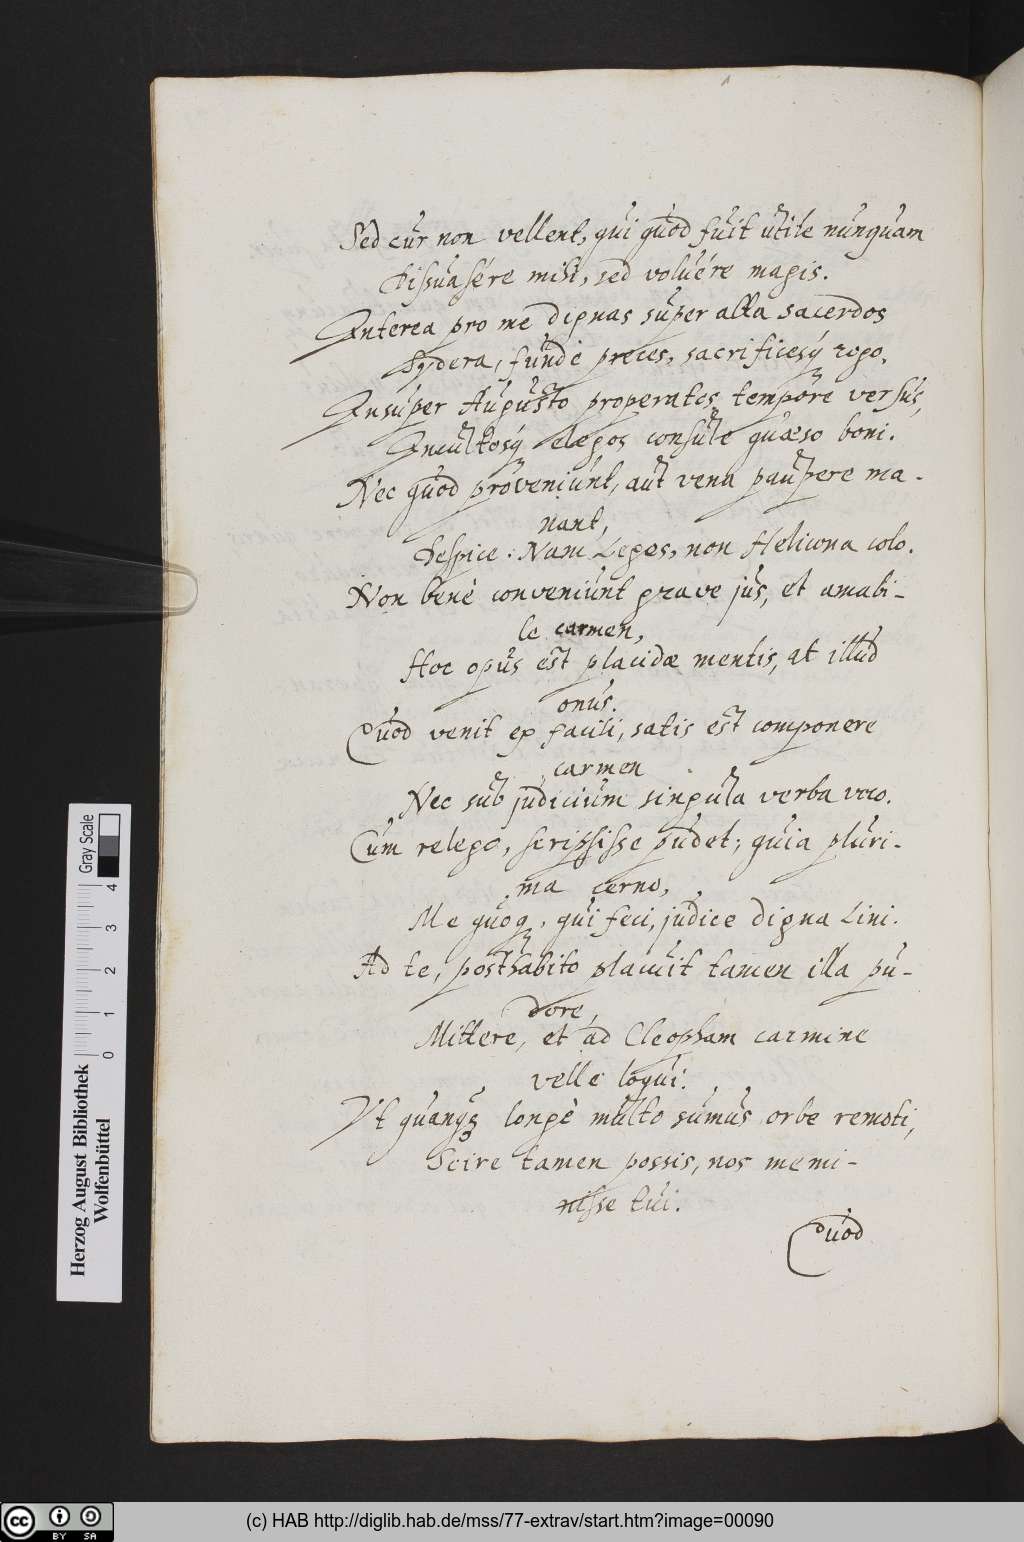 Sed cùr non vellent, qui quòd fuit utile nunquam
Dissuasére mihi, sed voluére magis.
Interea pro me dignas super alta sacerdos
Sydera, funde preces, sacrificesq́ rogo.
Insúper Augusto properatos tempore versus,
Incultosq́ elegos consule quæso boni.
Nec quòd proveniunt, aut vena paupere ma-
nant,
Despice: Nam Leges, non Helicona colo.
Non benè conveniunt grave jus, et amabi-
le carmen,
Hoc opus est placidæ mentis, at illud
onus.
Quod venit ex facili, satis est componere
carmen
Nec sub judicium singula verba voco.
Cum relego, scripsisse pudet; quia pluri-
ma cerno,
Me quoq, qui feci, judice digna Lini.
Ad te, posthabito placuit tamen illa pu-
dore,
Mittere, et ad Cleopham carmine
velle loqui.
Vt quanq́ longè multo sumus orbe remoti,
Scire tamen possis, nos memi-
nisse tui.
Quòd
Herzog August Bibliothek
Wolfenbüttel
0 1 2 3 4
Gray Scale
(c) HAB http://diglib.hab.de/mss/77-extrav/start.htm?image=00090
cc BY SA